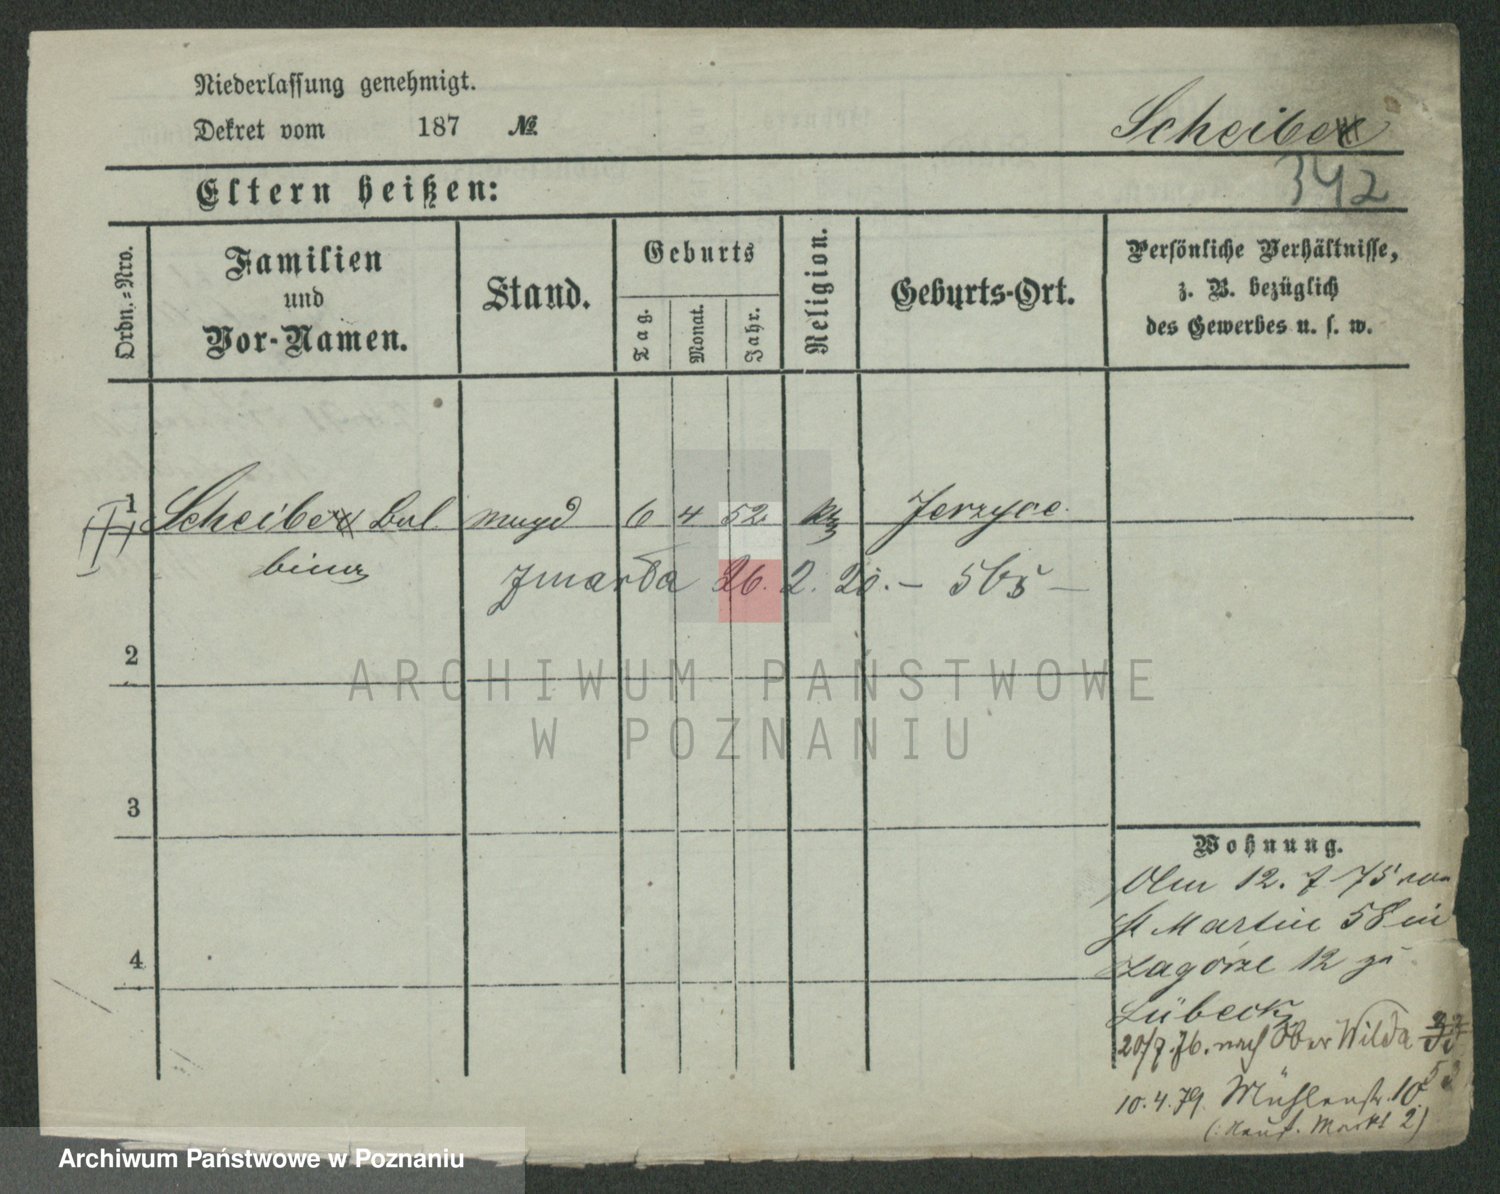 Niederlassung genehmigt.
Dekret vom 187 №
Scheibe
342
Eltern heißen:
Ordn.=Nro.
Familien
und
Vor-Namen.
Stand.
Geburts
Tag.
Monat.
Jahr.
Religion.
Geburts-Ort.
Persönliche Verhältnisse,
z. B. bezüglich
des Gewerbes u. s. w.
1 Scheibe Bal magd 6 4 52 kth Jerzyce.
bina
zmarła 26. 2. 20. – 565 –
2
3
4
Wohnung.
Am 12. 7. 75 von
St Martin 58 in
Zagórze 12 zu
Lübeck
20/7. 76. nach Ober Wilda
53
10. 4. 79. Mühlenstr. 10.
Markt 2)
ARCHIWUM PAŃSTWOWE
W POZNANIU
Archiwum Państwowe w Poznaniu